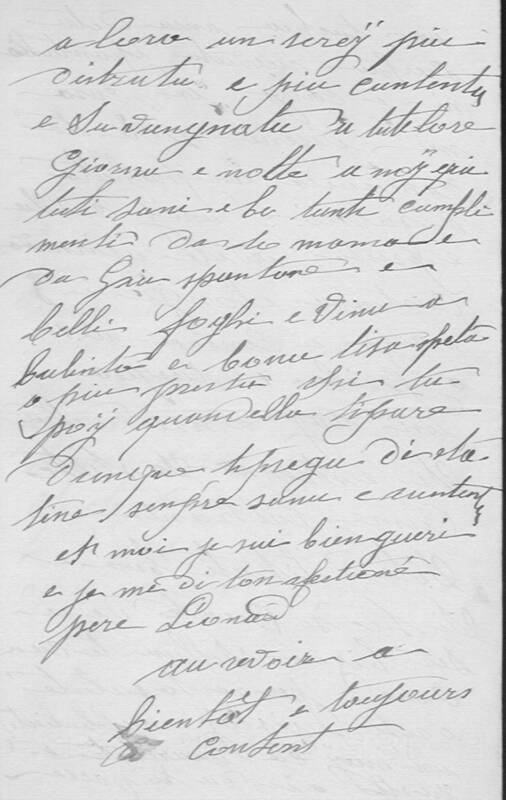 a lora un serëÿ piu
distrutu e piu cuntentu
e Su vungnatu a tute lore
Giornu e notte a noÿ qua
tuti sani e ta tanti cumpli
menti da la mama e
da Gia spontone e
belli foghi e Vinu a
e bonu tisaspeta
a piu prestu chi tu
poÿ quandella tipare
Dunque ti pregu di sta
tine senpre sanu e cuntent
et moi je sui bien gueri
e je me di ton afectioné
pere Léonard
au revoir a
bientôt e toujours
content